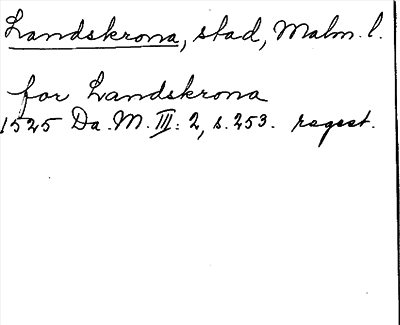 Landskrona, stad, Malm. l.
for Landskrona
1525 Da. M. III: 2, s. 253. regest.